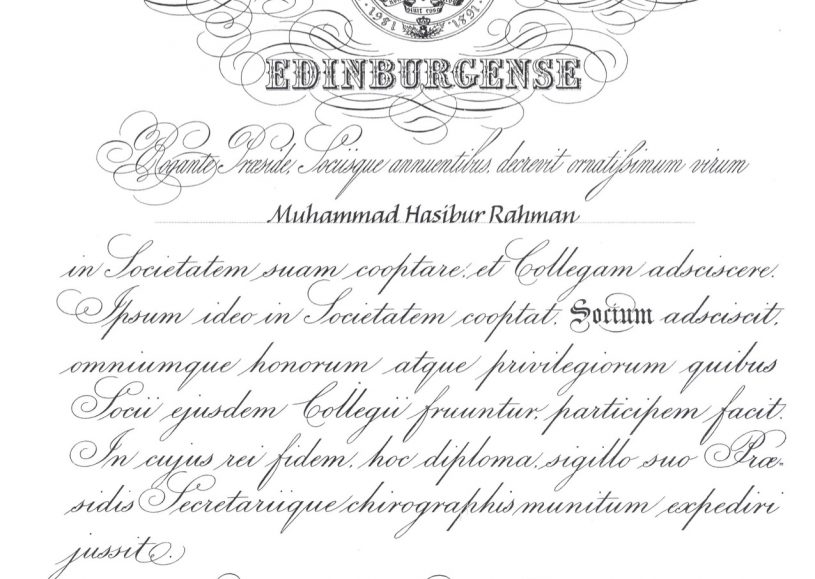 ·1681· ·1681·
EDINBURGENSE
Rogante Præside, Sociisque annuentibus, decrevit ornatissimum virum
Muhammad Hasibur Rahman
in Societatem suam cooptare, et Collegam adsciscere.
Ipsum ideo in Societatem cooptat, Socium adsciscit,
omniumque honorum atque privilegiorum quibus
Socii ejusdem Collegii fruuntur, participem facit.
In cujus rei fidem, hoc diploma, sigillo suo Præ-
sidis Secretariique chirographis munitum expediri
jussit.